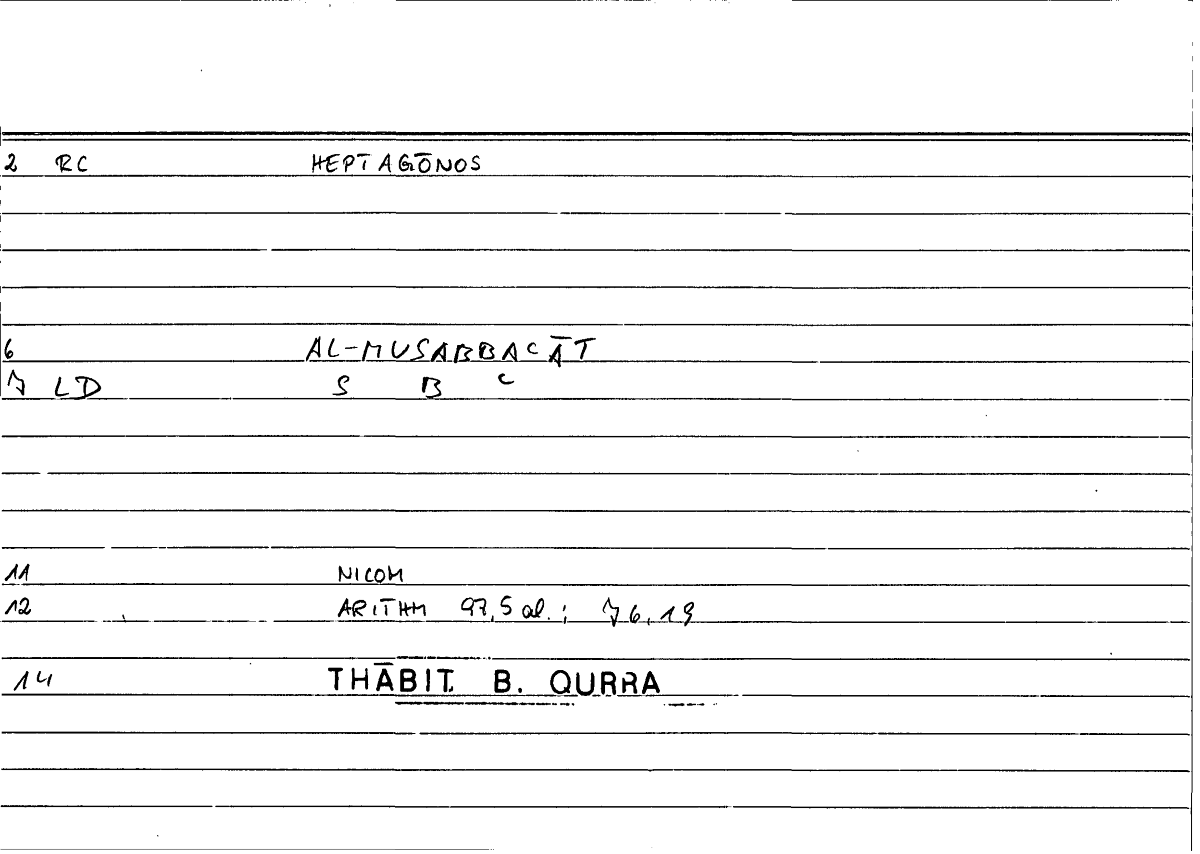 2 RC HEPTAGŌNOS
6 AL-MUSABBAᶜĀT
7 LD S B ᶜ
11 NICOM
12 ARITHM 97,5 al.; 76,19
14 THĀBIT. B. QURRA